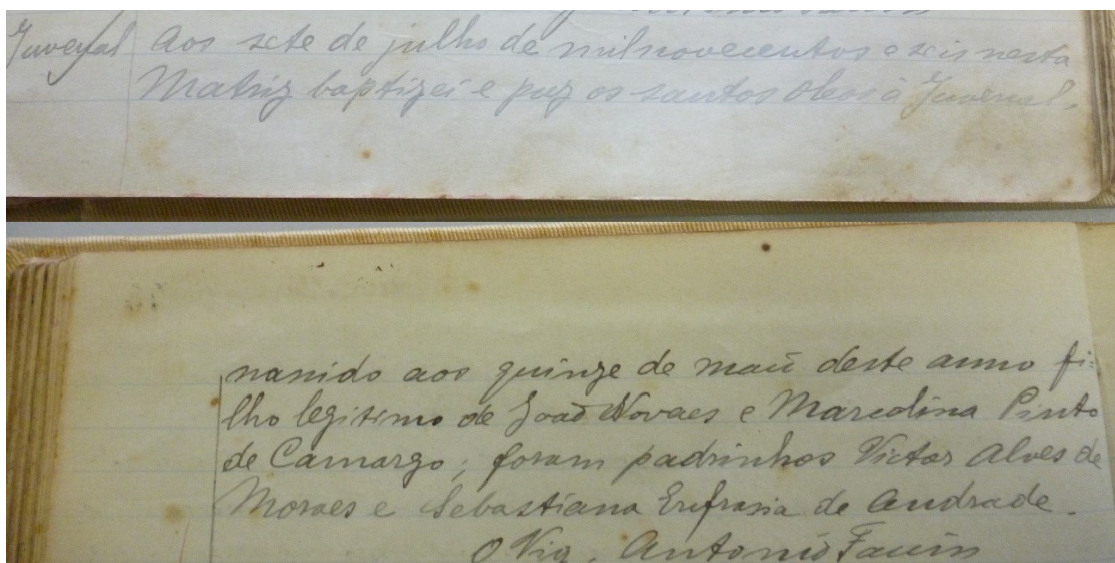 Juvenal Aos sete de julho de mil novecentos e seis nesta
Matriz baptizei e puz os santos oleos á Juvenal,
nascido aos quinze de maio deste anno fi-
lho legitimo de João Novaes e Marcolina Pinto
de Camargo; foram padrinhos Victor Alves de
Moraes e Sebastiana Eufrasia de Andrade.
O Vig. Antonio